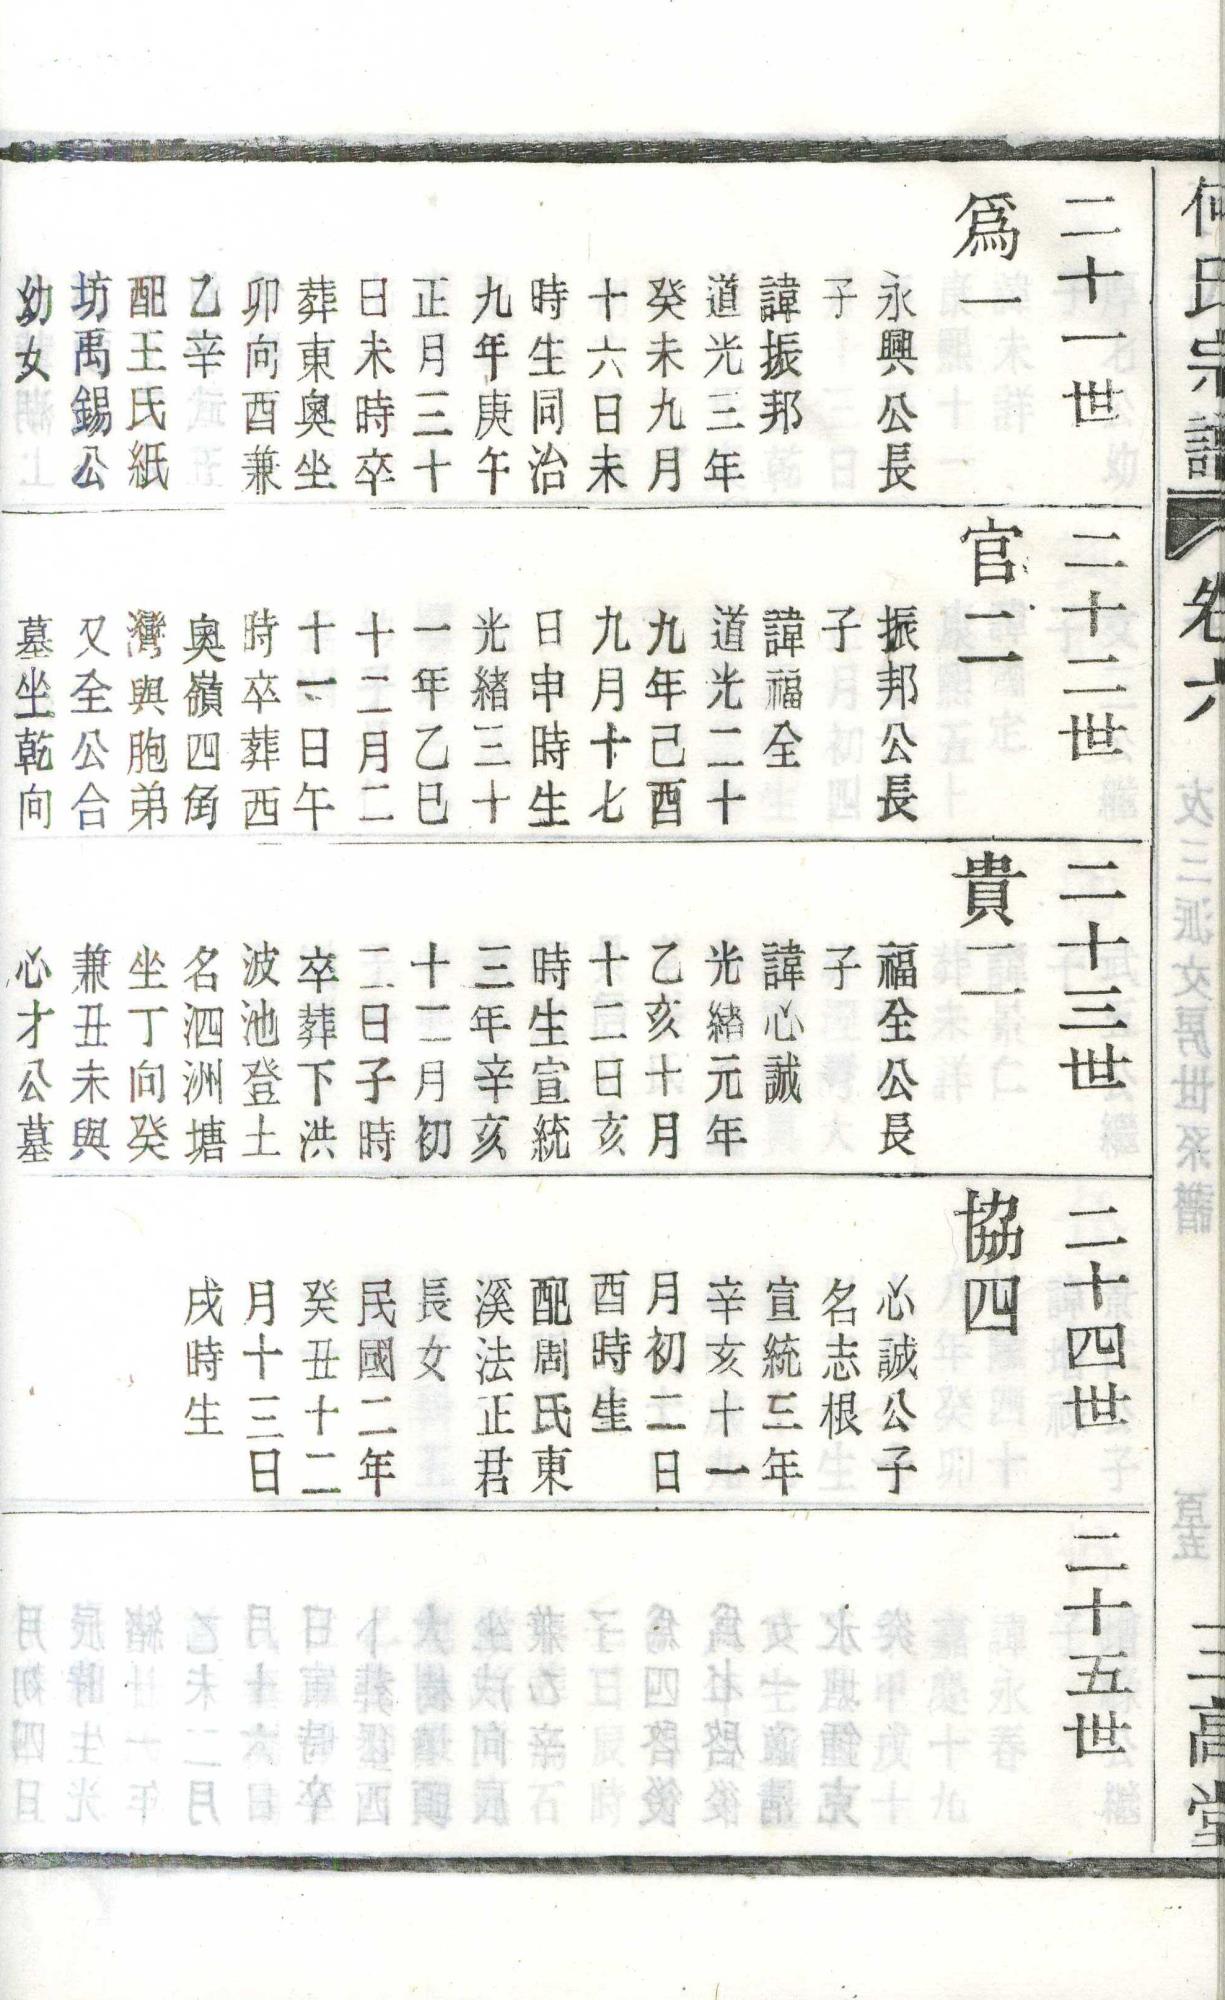 何氏宗譜
卷六
三高堂
二十一世
爲一
永興公長
子
諱振邦
道光三年
癸未九月
十六日未
時生同治
九年庚午
正月三十
日未時卒
葬東奥坐
卯向酉兼
乙辛
配王氏紙
坊禹錫公
幼女
二十二世
官二
振邦公長
子
諱福全
道光二十
九年己酉
九月十七
日申時生
光緒三十
一年乙巳
十二月二
十一日午
時卒葬西
奥嶺四角
灣與胞弟
又全公合
墓坐乾向
二十三世
貴二
福全公長
子
諱心誠
光緒元年
乙亥十月
十二日亥
時生宣統
三年辛亥
十二月初
二日子時
卒葬下洪
波池登土
名泗洲塘
坐丁向癸
兼丑未與
心才公墓
二十四世
協四
心誠公子
名志根
宣統三年
辛亥十一
月初二日
酉時生
配周氏東
溪法正君
長女
民國二年
癸丑十二
月十三日
戌時生
二十五世